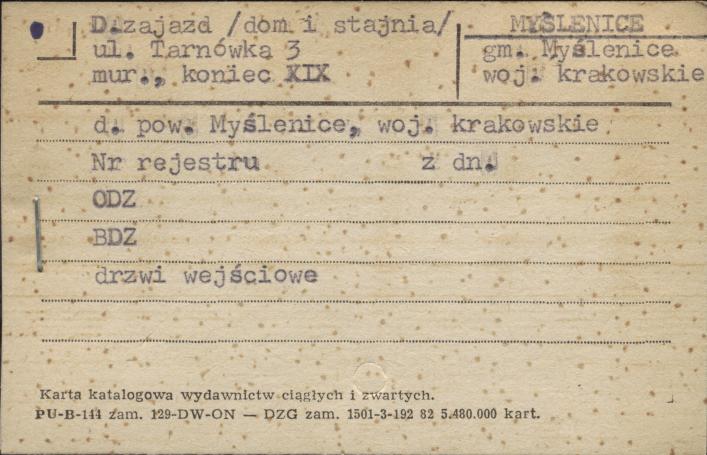 D.zajazd /dom i stajnia/
ul. Tarnówka 3
mur., koniec XIX
MYŚLENICE
gm. Myślenice
woj. krakowskie
d. pow. Myślenice, woj. krakowskie
Nr rejestru z dn.
ODZ
BDZ
drzwi wejściowe
Karta katalogowa wydawnictw ciągłych i zwartych.
PU-B-144 zam. 129-DW-ON — DZG zam. 1501-3-192 82 5.480.000 kart.